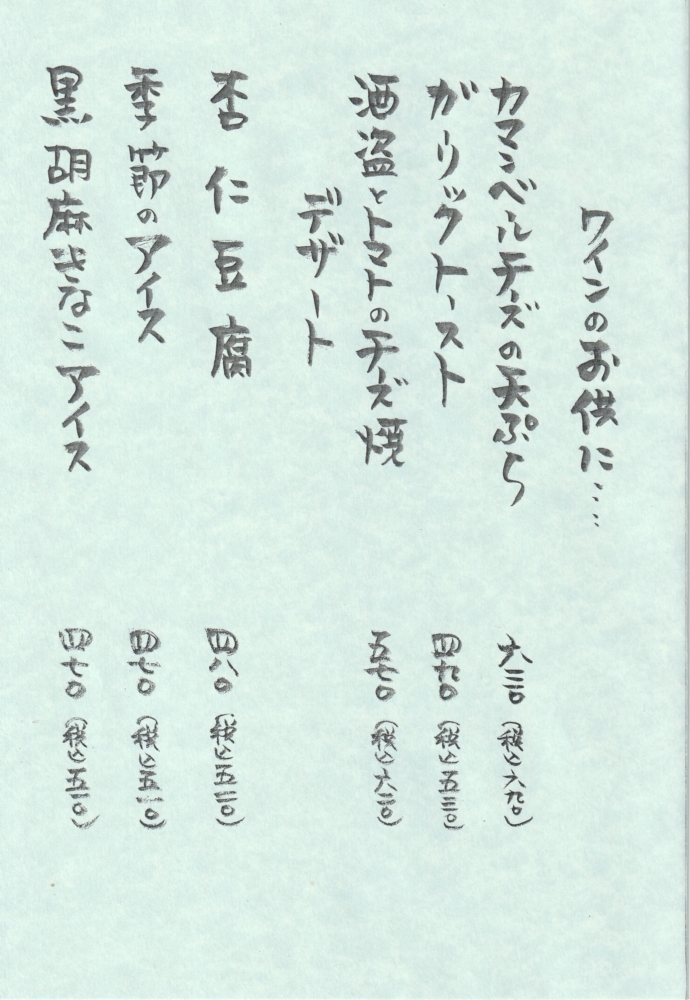 ワインのお供に……
カマンベールチーズの天ぷら 六三〇 (税込六九〇)
ガーリックトースト 四九〇 (税込五三〇)
酒盗とトマトのチーズ焼 五七〇 (税込六二〇)
デザート
杏仁豆腐 四八〇 (税込五二〇)
季節のアイス 四七〇 (税込五一〇)
黒胡麻きなこアイス 四七〇 (税込五一〇)